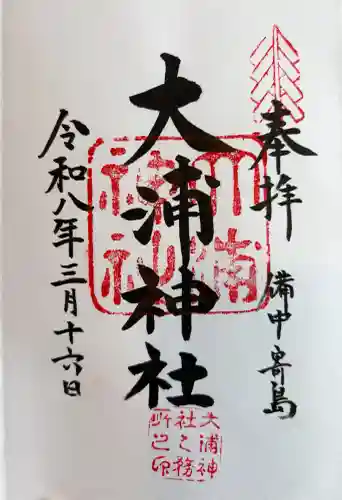 奉拝
備中寄島
大浦神社
大浦神社
令和八年三月十六日
大浦神
社之務
所之印